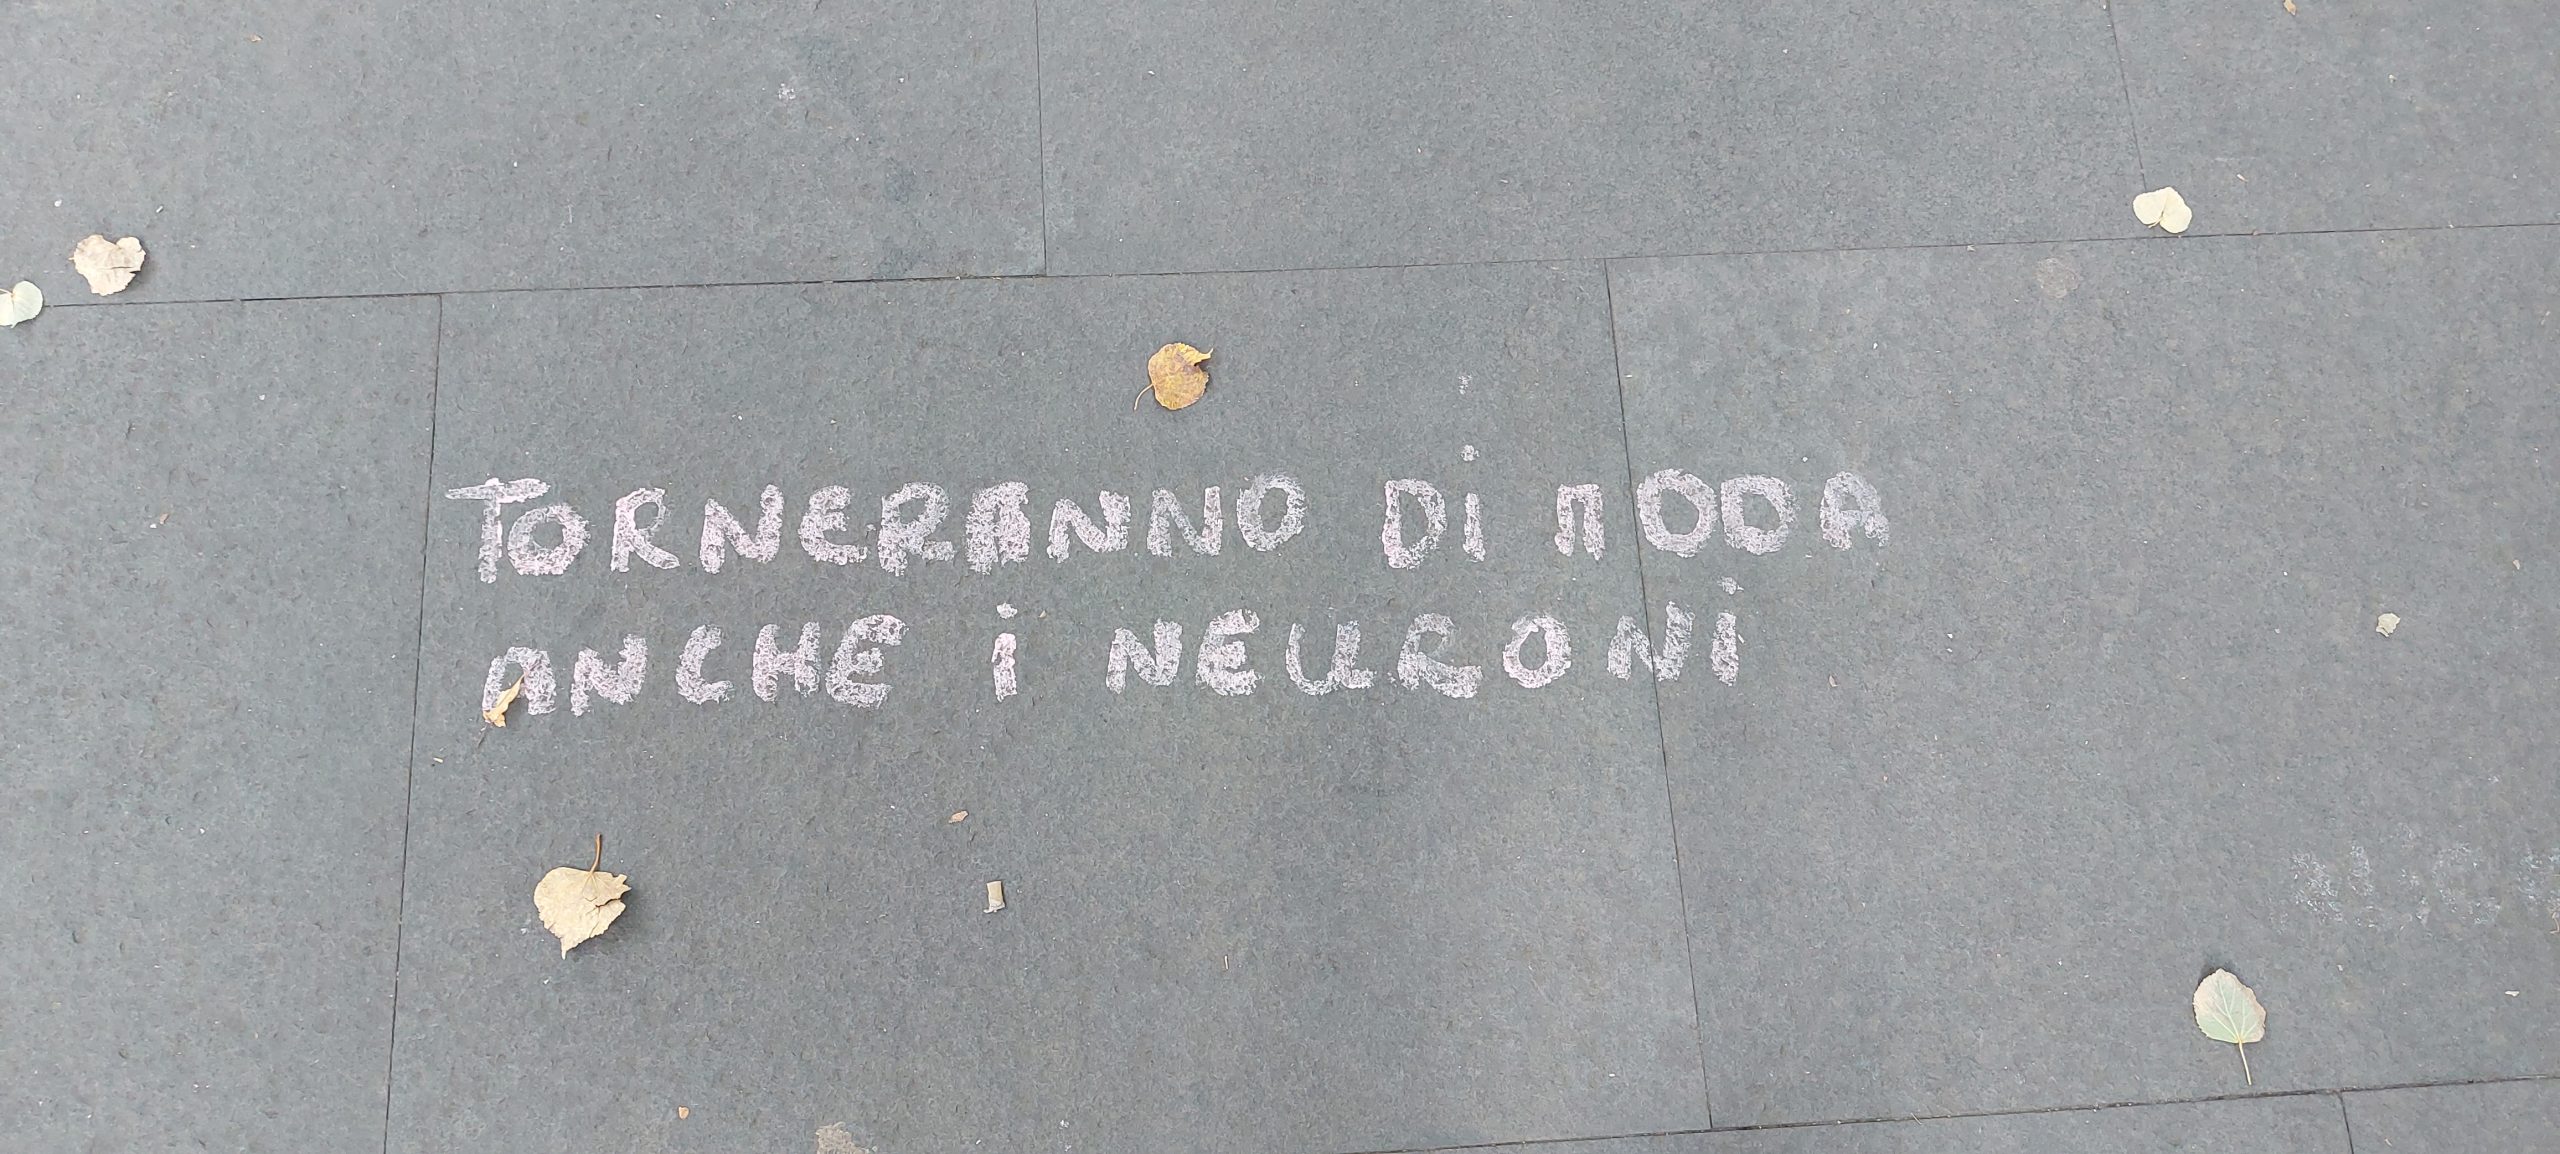 TORNERANNO Di MODA
ANCHE i NEURONi